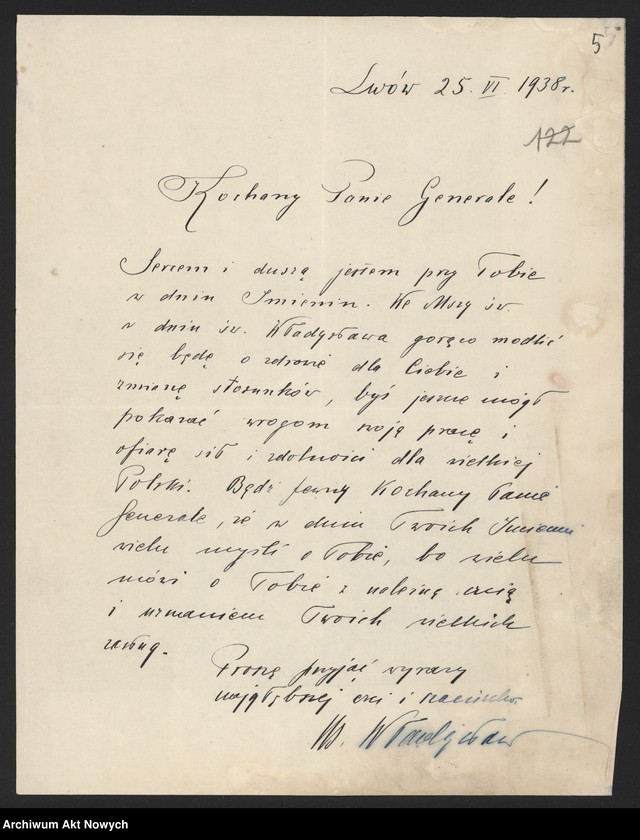 5
Lwów 25. VI. 1938 r.
122
Kochany Panie Generale!
Sercem i duszą jestem przy Tobie
w dniu Imienin. We Mszy św.
w dniu św. Władysława gorąco modlić
się będę o zdrowie dla Ciebie i
zmianę stosunków, byś jeszcze mógł
pokazać wrogom swoją pracę i
ofiarę sił i zdolności dla wielkiej
Polski. Bądź pewny Kochany Panie
Generale, że w dniu Twoich Imienin
wielu myśli o Tobie, bo wielu
mówi o Tobie z należną czcią
i uznaniem Twoich wielkich
zasług.
Proszę przyjąć wyrazy
najgłębszej czci i szacunku.
Władysław
Archiwum Akt Nowych